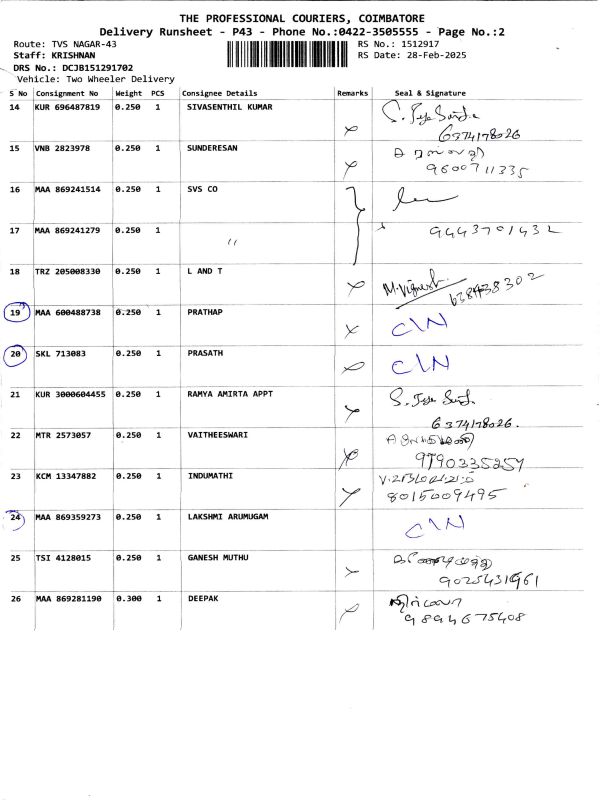 THE PROFESSIONAL COURIERS, COIMBATORE
Delivery Runsheet - P43 - Phone No.:0422-3505555 - Page No.:2
Route: TVS NAGAR-43 RS No.: 1512917
Staff: KRISHNAN RS Date: 28-Feb-2025
DRS No.: DCJB151291702
Vehicle: Two Wheeler Delivery
S No Consignment No Weight PCS Consignee Details Remarks Seal & Signature
14 KUR 696487819 0.250 1 SIVASENTHIL KUMAR
6374178026
15 VNB 2823978 0.250 1 SUNDERESAN
9600711335
16 MAA 869241514 0.250 1 SVS CO
17 MAA 869241279 0.250 1 〃 9443701432
18 TRZ 205008330 0.250 1 L AND T M.Vignesh
19 MAA 600488738 0.250 1 PRATHAP C\N
20 SKL 713083 0.250 1 PRASATH C\N
21 KUR 3000604455 0.250 1 RAMYA AMIRTA APPT
6374178026.
22 MTR 2573057 0.250 1 VAITHEESWARI
9790335257
23 KCM 13347882 0.250 1 INDUMATHI
8015009495
24 MAA 869359273 0.250 1 LAKSHMI ARUMUGAM C\N
25 TSI 4128015 0.250 1 GANESH MUTHU
9025431961
26 MAA 869281190 0.300 1 DEEPAK
9894675408